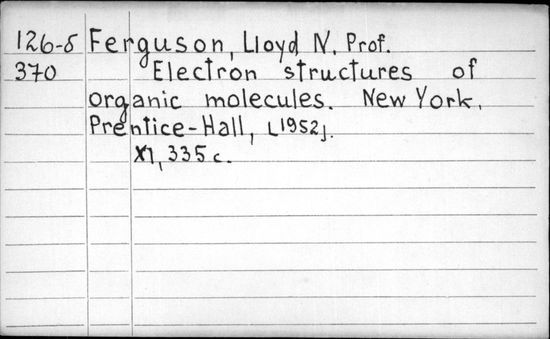 126-5 Ferguson, Lloyd N, Prof.
370 Electron structures of
organic molecules. New York,
Prentice-Hall, [1952].
XI, 335 c.